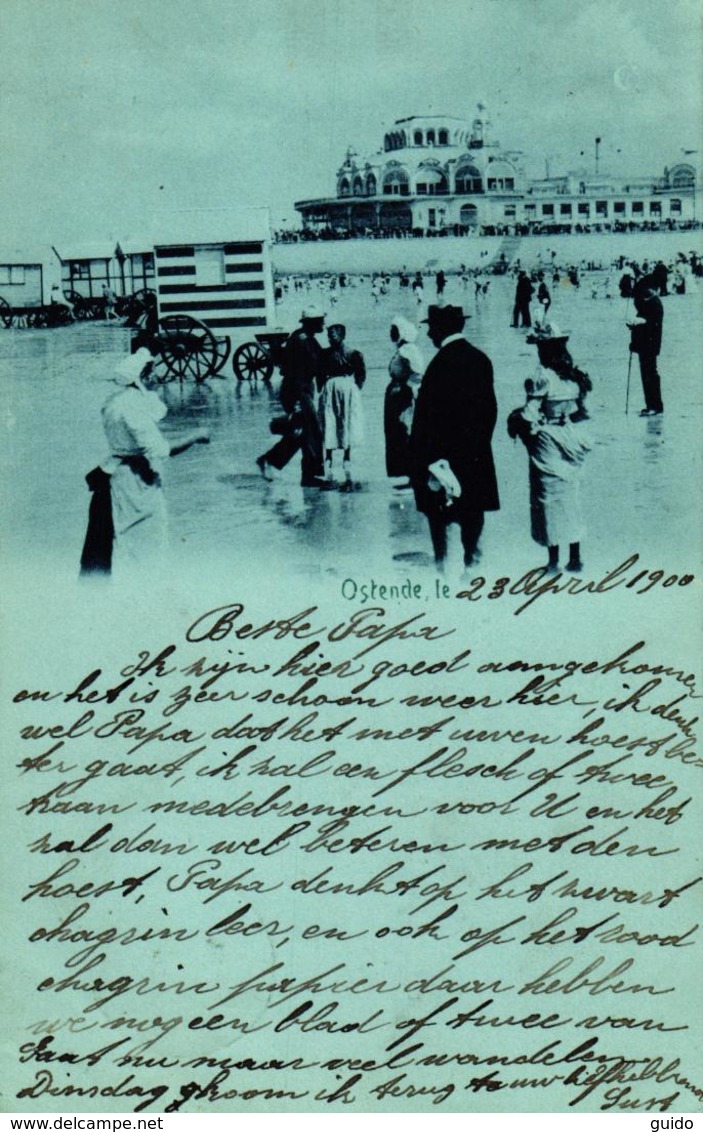 Ostende, le 23 April 1900
Beste Papa
Ik zijn hier goed aangekomen
en het is zeer schoon weer hier, ik denk
wel Papa dat het met uwen hoest be-
ter gaat, ik zal een flesch of twee
traan medebrengen voor U en het
zal dan wel beteren met den
hoest, Papa denkt op het zwart
chagrin leer, en ook op het rood
chagrin papier daar hebben
we nog een blad of twee van
Gaat nu maar veel wandelen
Dinsdag koom ik terug uw liefhebbende
www.delcampe.net
guido